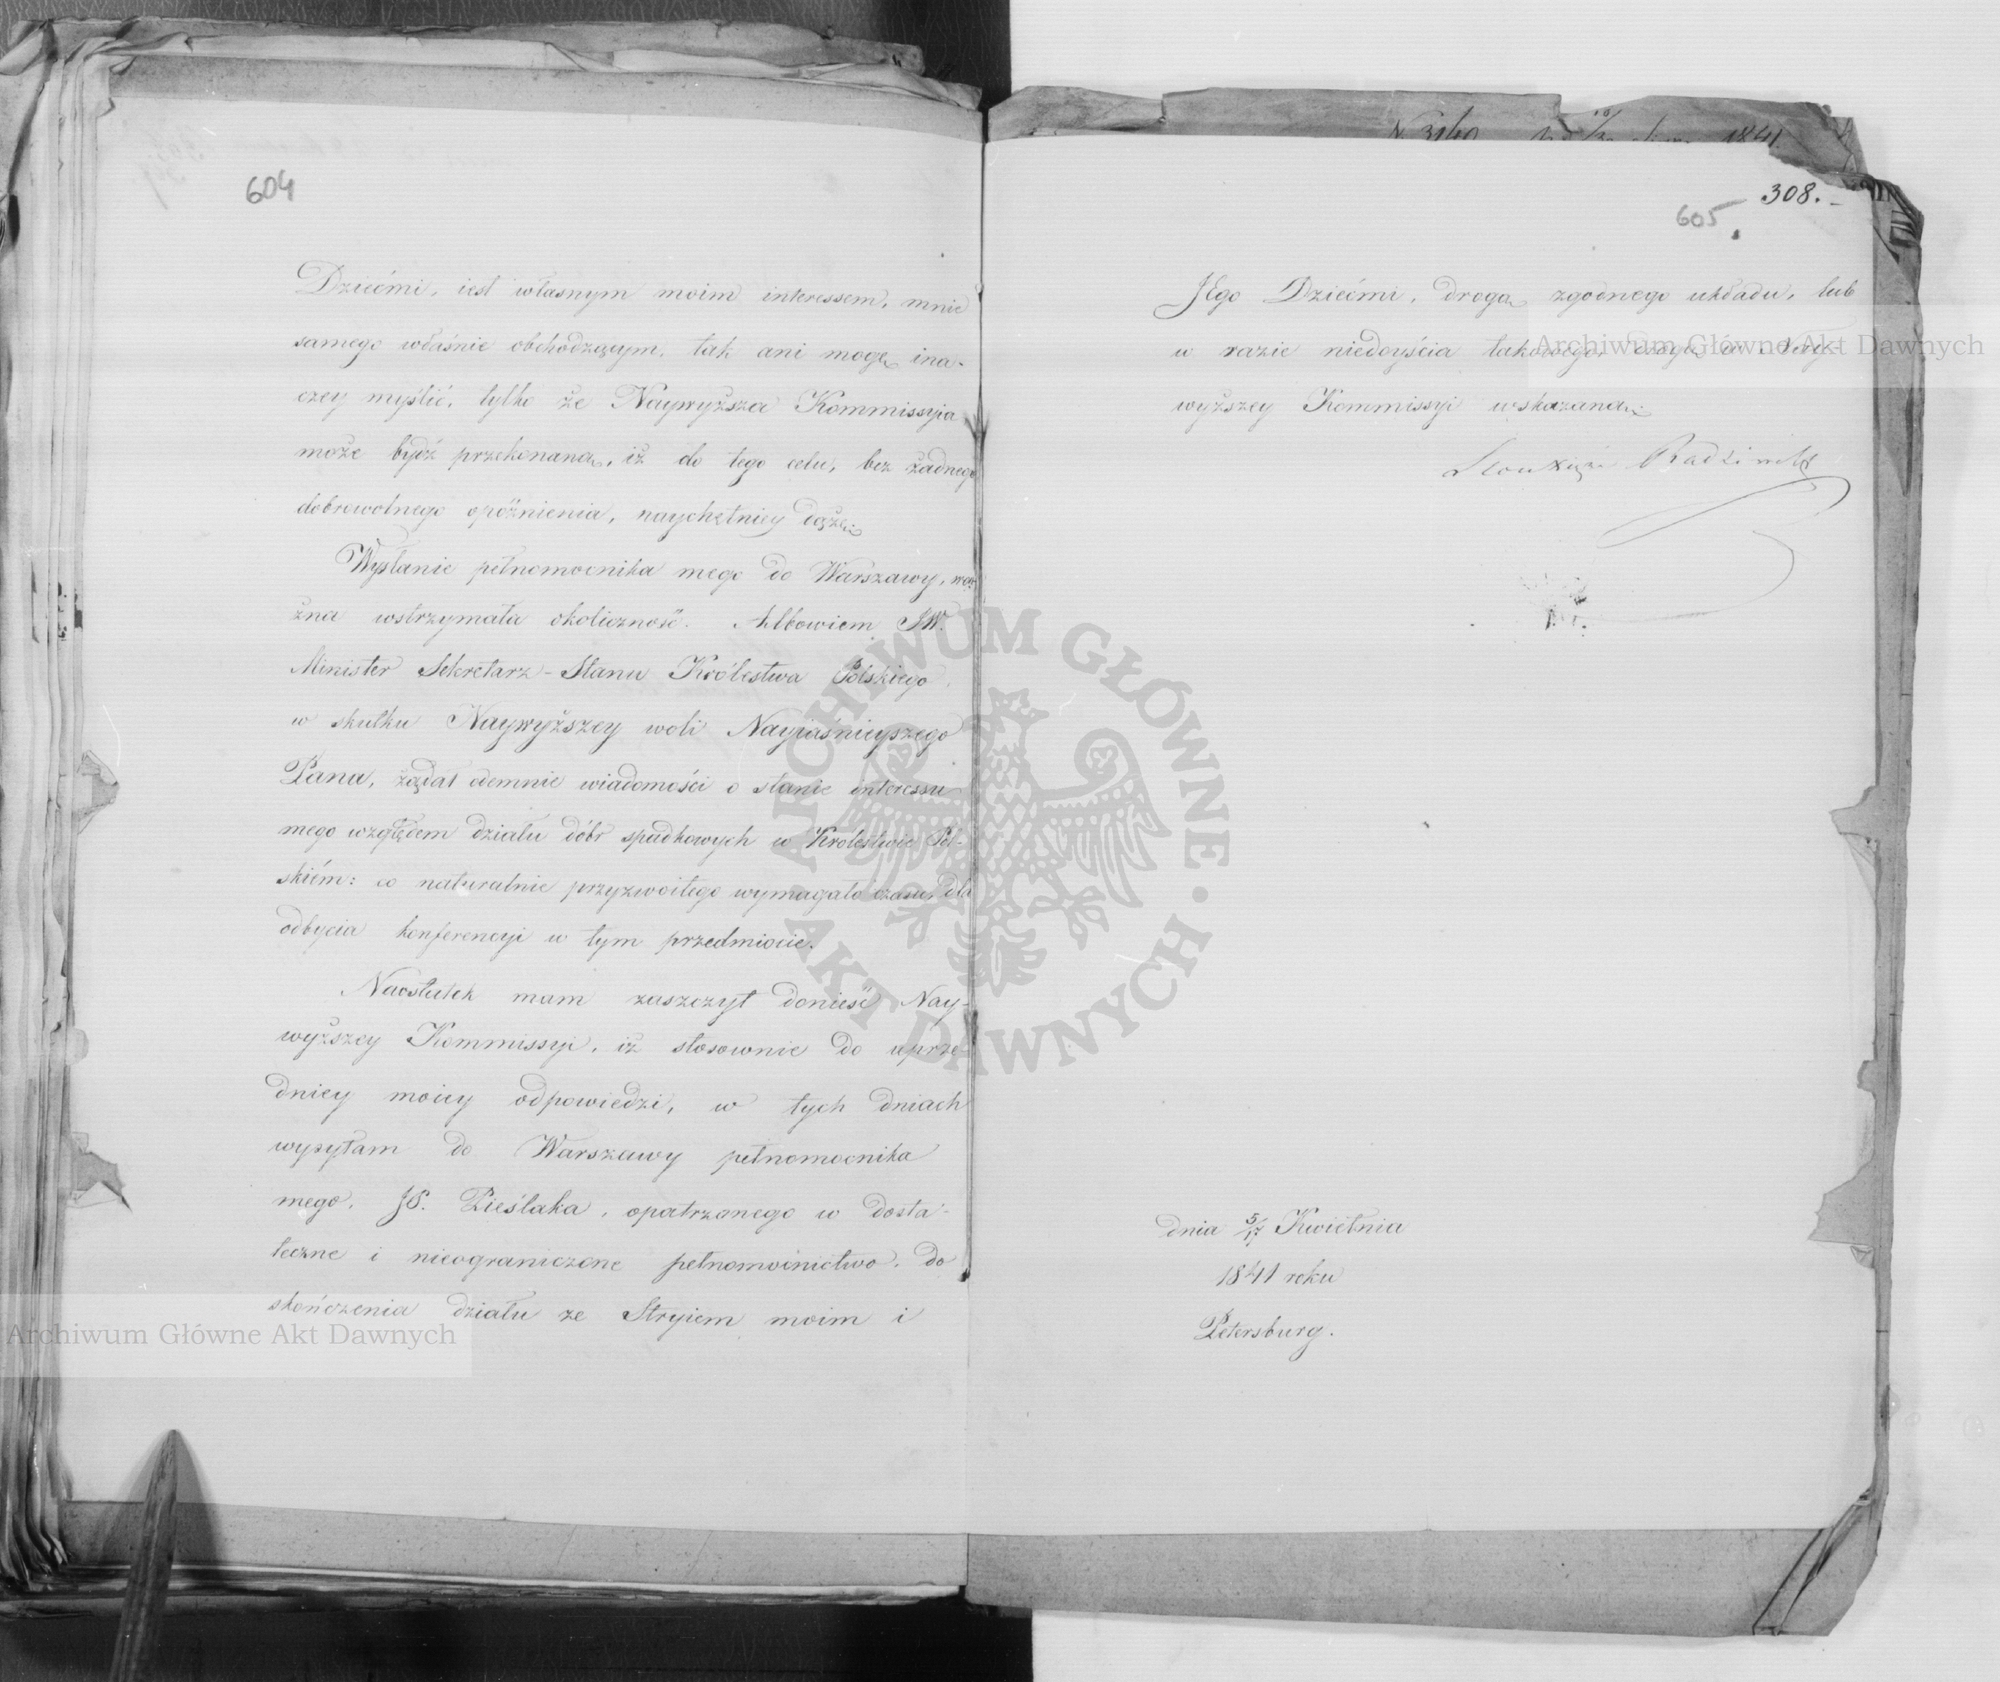 604
Dziećmi, iest własnym moim interessem, mnie
samego właśnie obchodzącym, tak ani mogę ina-
czey myślić, tylko że Naywyższa Kommissyia
może bydź przekonaną, iż do tego celu, bez żadnego
dobrowolnego opóźnienia, naychętniey dążę.
Wysłanie pełnomocnika mego do Warszawy, wa-
żna wstrzymała okoliczność. Albowiem JW.
Minister Sekretarz-Stanu Królestwa Polskiego,
w skutku Naywyższey woli Nayiaśnieyszego
Pana, żądał odemnie wiadomości o stanie interessu
mego względem działu dóbr spadkowych w Królestwie Pol-
skiém: co naturalnie przyzwoitego wymagało czasu, dla
odbycia konferencyi w tym przedmiocie.
Naostatek mam zaszczyt donieść Nay-
wyższey Kommissyi, iż stosownie do uprze-
dniey moiey odpowiedzi, w tych dniach
wysyłam do Warszawy pełnomocnika
mego, JP. Pieślaka, opatrzonego w dosta-
teczne i nieograniczone pełnomocnictwo, do
skończenia działu ze Stryiem moim i
308.
605
Jego Dziećmi, drogą zgodnego układu, lub
w razie niedoyścia takowego, drogą w Nay-
wyższey Kommissyi wskazaną.
Leon Xiąże Radziwiłł
dnia 5/17 Kwietnia
1841 roku
Petersburg.
Archiwum Główne Akt Dawnych
Archiwum Główne Akt Dawnych
ARCHIWUM GŁÓWNE · AKT DAWNYCH ·